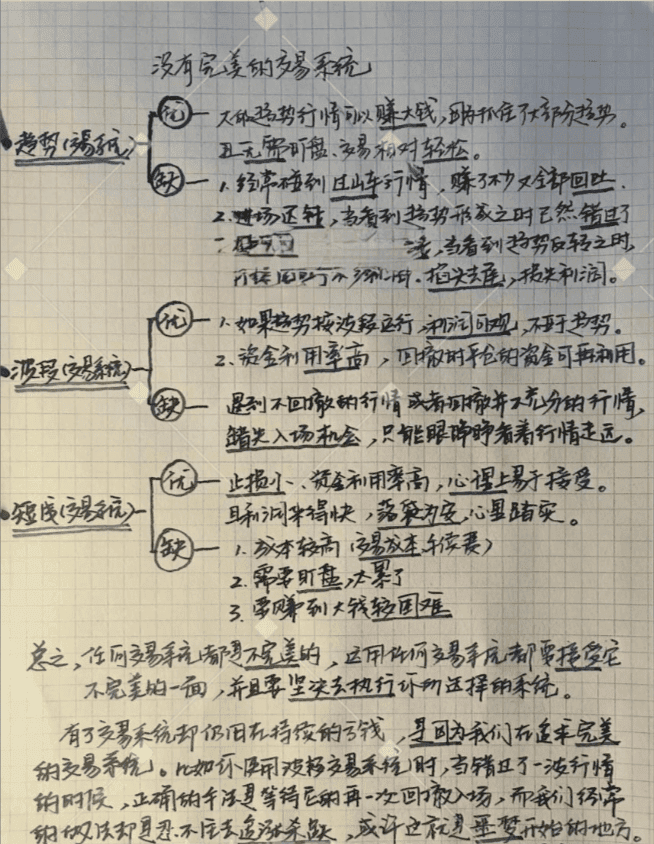 没有完美的交易系统
趋势(交易系统)
优
大的趋势行情可以赚大钱,因为抓住了大部分趋势。
且无需盯盘、交易相对轻松。
缺
1. 经常碰到过山车行情,赚了不少又全部回吐.
2. 进场迟钝,当看到趋势形成之时已然错过了
,当看到趋势反转之时,
掐头去尾,损失利润。
波段(交易系统)
优
1. 如果趋势按波段运行,利润可观,不亚于趋势。
2. 资金利用率高,回撤时平仓的资金可再利用。
缺
遇到不回撤的行情或者回撤并不充分的行情,
错失入场机会,只能眼睁睁看着行情走远。
短线(交易系统)
优
止损小、资金利用率高,心理上易于接受。
且利润来得快,落袋为安,心里踏实。
缺
1. 成本较高(交易成本手续费)
2. 需要盯盘,太累了
3. 要赚到大钱较困难
总之,任何交易系统都是不完美的,运用任何交易系统都要接受它
不完美的一面,并且要坚决去执行你所选择的系统。
有了交易系统却仍旧在持续的亏钱,是因为我们在追求完美
的交易系统。比如你使用波段交易系统时,当错过了一波行情
的时候,正确的手法是等待它的再一次回撤入场,而我们经常
的做法却是忍不住去追涨杀跌,或许这就是噩梦开始的地方。